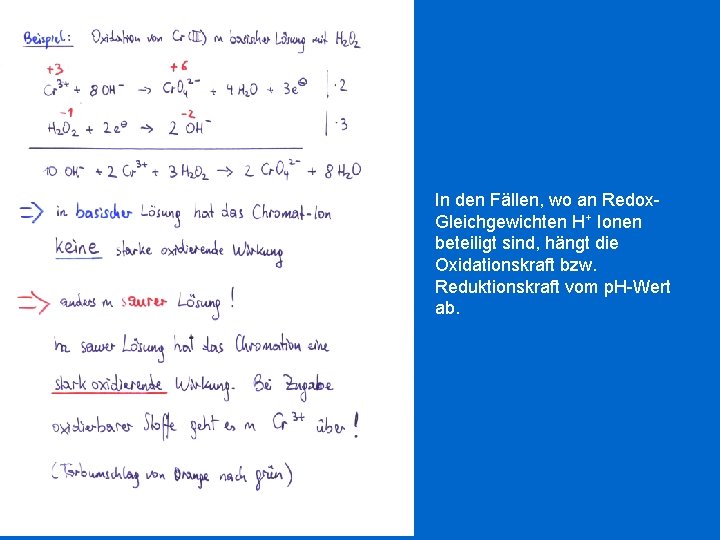 Beispiel: Oxidation von Cr(III) in basischer Lösung mit H₂O₂
+3 +6
Cr³⁺ + 8 OH⁻ → CrO₄²⁻ + 4 H₂O + 3e⊖ | ·2
-1 -2
H₂O₂ + 2e⊖ → 2 OH⁻ | ·3
10 OH⁻ + 2 Cr³⁺ + 3 H₂O₂ → 2 CrO₄²⁻ + 8 H₂O
⇒ in basischer Lösung hat das Chromat-Ion
keine starke oxidierende Wirkung
⇒ anders in saurer Lösung!
In saurer Lösung hat das Chromation eine
stark oxidierende Wirkung. Bei Zugabe
oxidierbarer Stoffe geht es in Cr³⁺ über!
(Farbumschlag von Orange nach grün)
In den Fällen, wo an Redox-
Gleichgewichten H⁺ Ionen
beteiligt sind, hängt die
Oxidationskraft bzw.
Reduktionskraft vom p.H-Wert
ab.